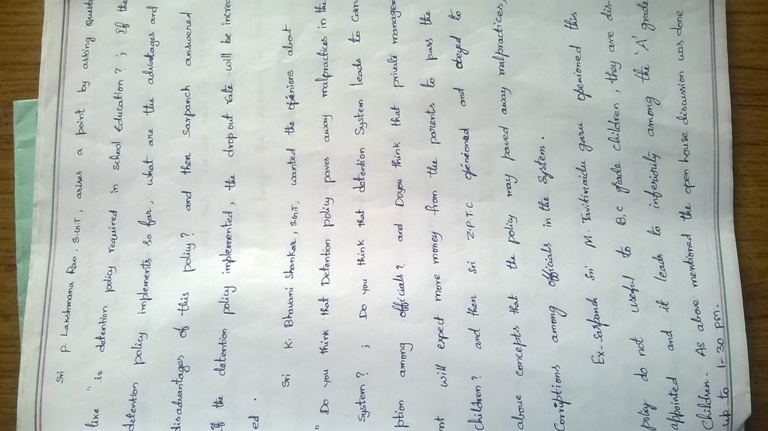 Sri P. Lakshmana Rao, S.G.T, arises a point by asking quest
like "is detention policy required in school education? ; If the
detention policy implements so far, what are the advantages and
disadvantages of this policy? and then Sarpanch answered
If the detention policy implemented, the drop out rate will be incre
ed.
Sri K. Bhavani Shankar, S.G.T, wanted the openions about
"Do you think that Detention policy paves away malpractices in the
System? ; Do you think that detention System leads to Corr
ption among officials? and Do you think that private managem
nt will expect more money from the parents to pass the
children? and then Sri Z.P.T.C openioned and obeyed to
above concepts that the policy may paved away malpractices,
Corruptions among officials in the System.
Ex-Sarpanch Sri M. Tavitinaidu garu openioned this
policy do not useful to B.C grade children, they are dis-
appointed and it leads to inferiority among the 'A' grade
Children. As above mentioned the open house discussion was done
up to 1-30 pm.